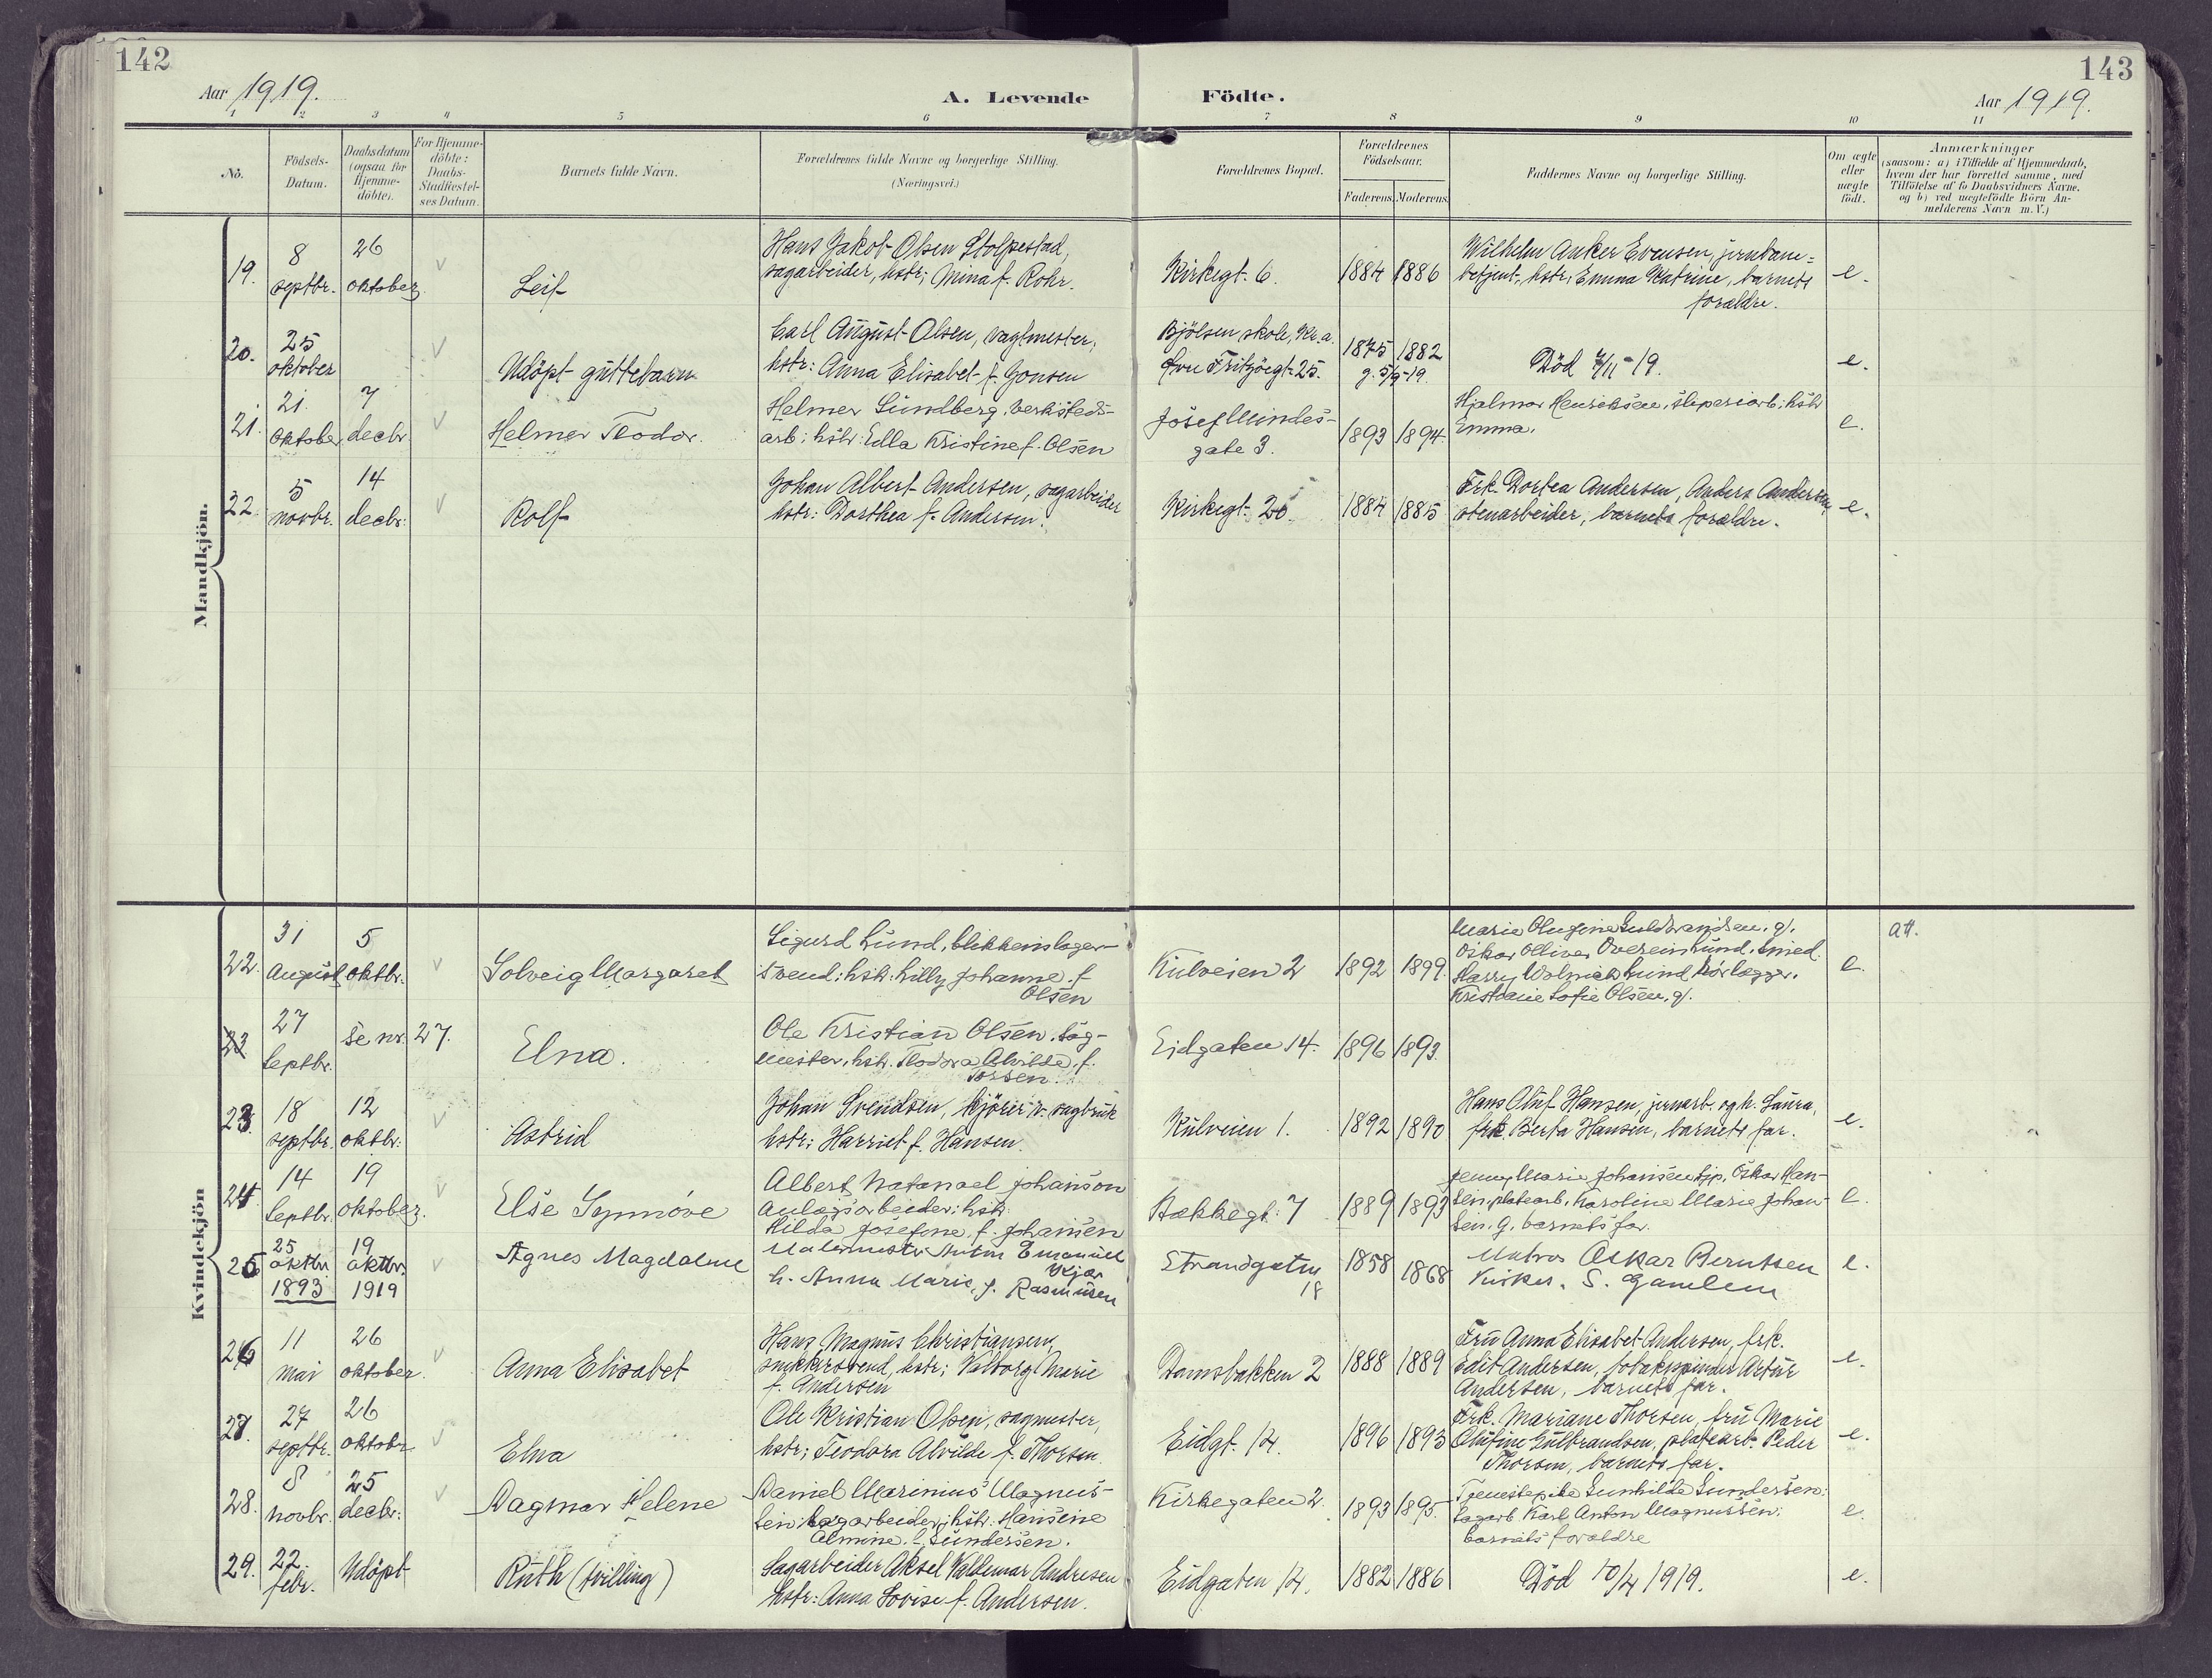 142
143
Aar 1919.
A. Levende Födte.
Aar 1919.
1 2 3 4 5 6 7 8 9 10 11
No.
Födsels-Datum.
Daabsdatum (ogsaa for Hjemme-döbte).
For Hjemme-döbte: Daabs-Stadfæstel-ses Datum.
Barnets fulde Navn.
Forældrenes fulde Navne og borgerlige Stilling.
(Næringsvei.)
Forældrenes Bopæl.
Forældrenes Födselsaar.
Faderens. Moderens.
Faddernes Navne og borgerlige Stilling.
Om ægte eller uægte födt.
Anmærkninger
(saasom: a) i Tilfælde af Hjemmedaab,
hvem der har forrettet samme, med
Tilföielse af to Daabsvidners Navne,
og b) ved uægtefödte Börn An-
melderens Navn m. V.)
Mandkjön.
19. 8 septbr. 26 oktober
Leif
Hans Jakob Olsen Stolpestad,
sagarbeider, hstr; Mina f. Rohr.
Kirkegt. 6. 1884 1886
Wilhelm Anker Evensen, jernbane-
betjent, hstr; Emma Katrine, barnets
forældre.
e.
20. 25 oktober
Udöpt guttebarn
Carl August Olsen, vagtmester,
hstr: Anna Elisabet f. Jonsen
Bjölsen skole, Kr.a.
fru Fritzöegt. 25.
1875 1882
g. 5/9-19.
Död 7/11-19.
e.
21. 21. oktober 7 decbr.
Helmer Teodor.
Helmer Lundberg, verksteds-
arb; hstr: Ella Kristine f. Olsen
Josef Mindes-
gate 3.
1893 1894
Hjalmar Henriksen, sliperiarb; hstr
Emma.
e.
22. 5 novbr. 14 decbr:
Rolf
Johan Albert Andersen, sagarbeider
hstr: Dorthea f. Andersen.
Kirkegt. 20. 1884 1885
Frk. Dortea Andersen, Anders Andersen,
stenarbeider, barnets forældre.
e.
Kvindekjön
22. 31 August 5 oktbr.
Solveig Margaret
Sigurd Lund, blikkenslager-
svend; hstr: Lilly Johanne f.
Olsen
Kulveien 2 1892 1899.
Marie Olugine Guldbrandsen, g/.
Oskar Olliver Overein Lund, smed.
Harry Wolnick Lund Rörlægger.
Kristiane Sofie Olsen, g/.
e.
att.
23 27 Septbr. Se nr. 27.
Elna.
Ole Kristian Olsen, sag-
mester, hstr. Teodora Alvilde f.
Torsen.
Eidgaten 14. 1896 1893.
23. 18 septbr. 12 oktbr:
Astrid
Johan Svendsen, kjörer v. sagbruk
hstr; Harriet f. Hansen.
Kulveien 1. 1892 1890
Hans Oluf Hansen, jernarb. og h. Laura,
frk. Berta Hansen, barnets far.
e.
24. 14 Septbr. 19 oktober.
Else Synnöve
Albert Natanael Johanson
Anlægsarbeider; hstr.
Hilda Josefine f. Johansen
Bakkegt. 7 1889 1893
Jenny Marie Johansen tjp, Oskar Han-
sen, platearb. Karoline Marie Johan-
sen. g. barnets far.
e.
25 25 oktbr. 1893 19 oktbr. 1919
Agnes Magdalene
Malermester Anton Emanuel
Kjær
h. Anna Marie, f. Rasmusen
Strandgaten
18
1858 1868
Matros Oskar Berntsen
Kirkes. S. Gamlem
e.
26 11 mai 26 oktober.
Anna Elisabet
Hans Magnus Christiansen,
snekkersvend, hstr; Valborg Marie
f. Andersen
Damsbakken 2 1888 1889
Fru Anna Elisabet Andersen, frk.
Edit Andersen, tobakspinder Artur
Andersen, barnets far.
e.
27. 27 septbr. 26 oktobr.
Elna
Ole Kristian Olsen, sagmester,
hstr; Teodora Alvilde f. Thorsen.
Eidgt. 14. 1896 1893
Frk. Mariane Thorsen, fru Marie
Olufine Gulbrandsen, platearb. Peder
Thorsen, barnets far.
e.
28. 8 novbr. 25 decbr:
Dagmar Helene
Daniel Marinius Magnus-
sen; sagarbeider; hstr. Hansine
Almine f. Gundersen.
Kirkegaten 2. 1893 1895.
Tjenestepike Gunhilda Gundersen;
Sagarb. Karl Anton Magnussen;
barnets forældre
e.
29. 22. febr. Udöpt
Ruth (tvilling)
Sagarbeider Aksel Valdemar Andresen
hstr: Anna Lovise f. Andersen.
Eidgaten 14. 1882 1886
Död 10/4 1919.
e.